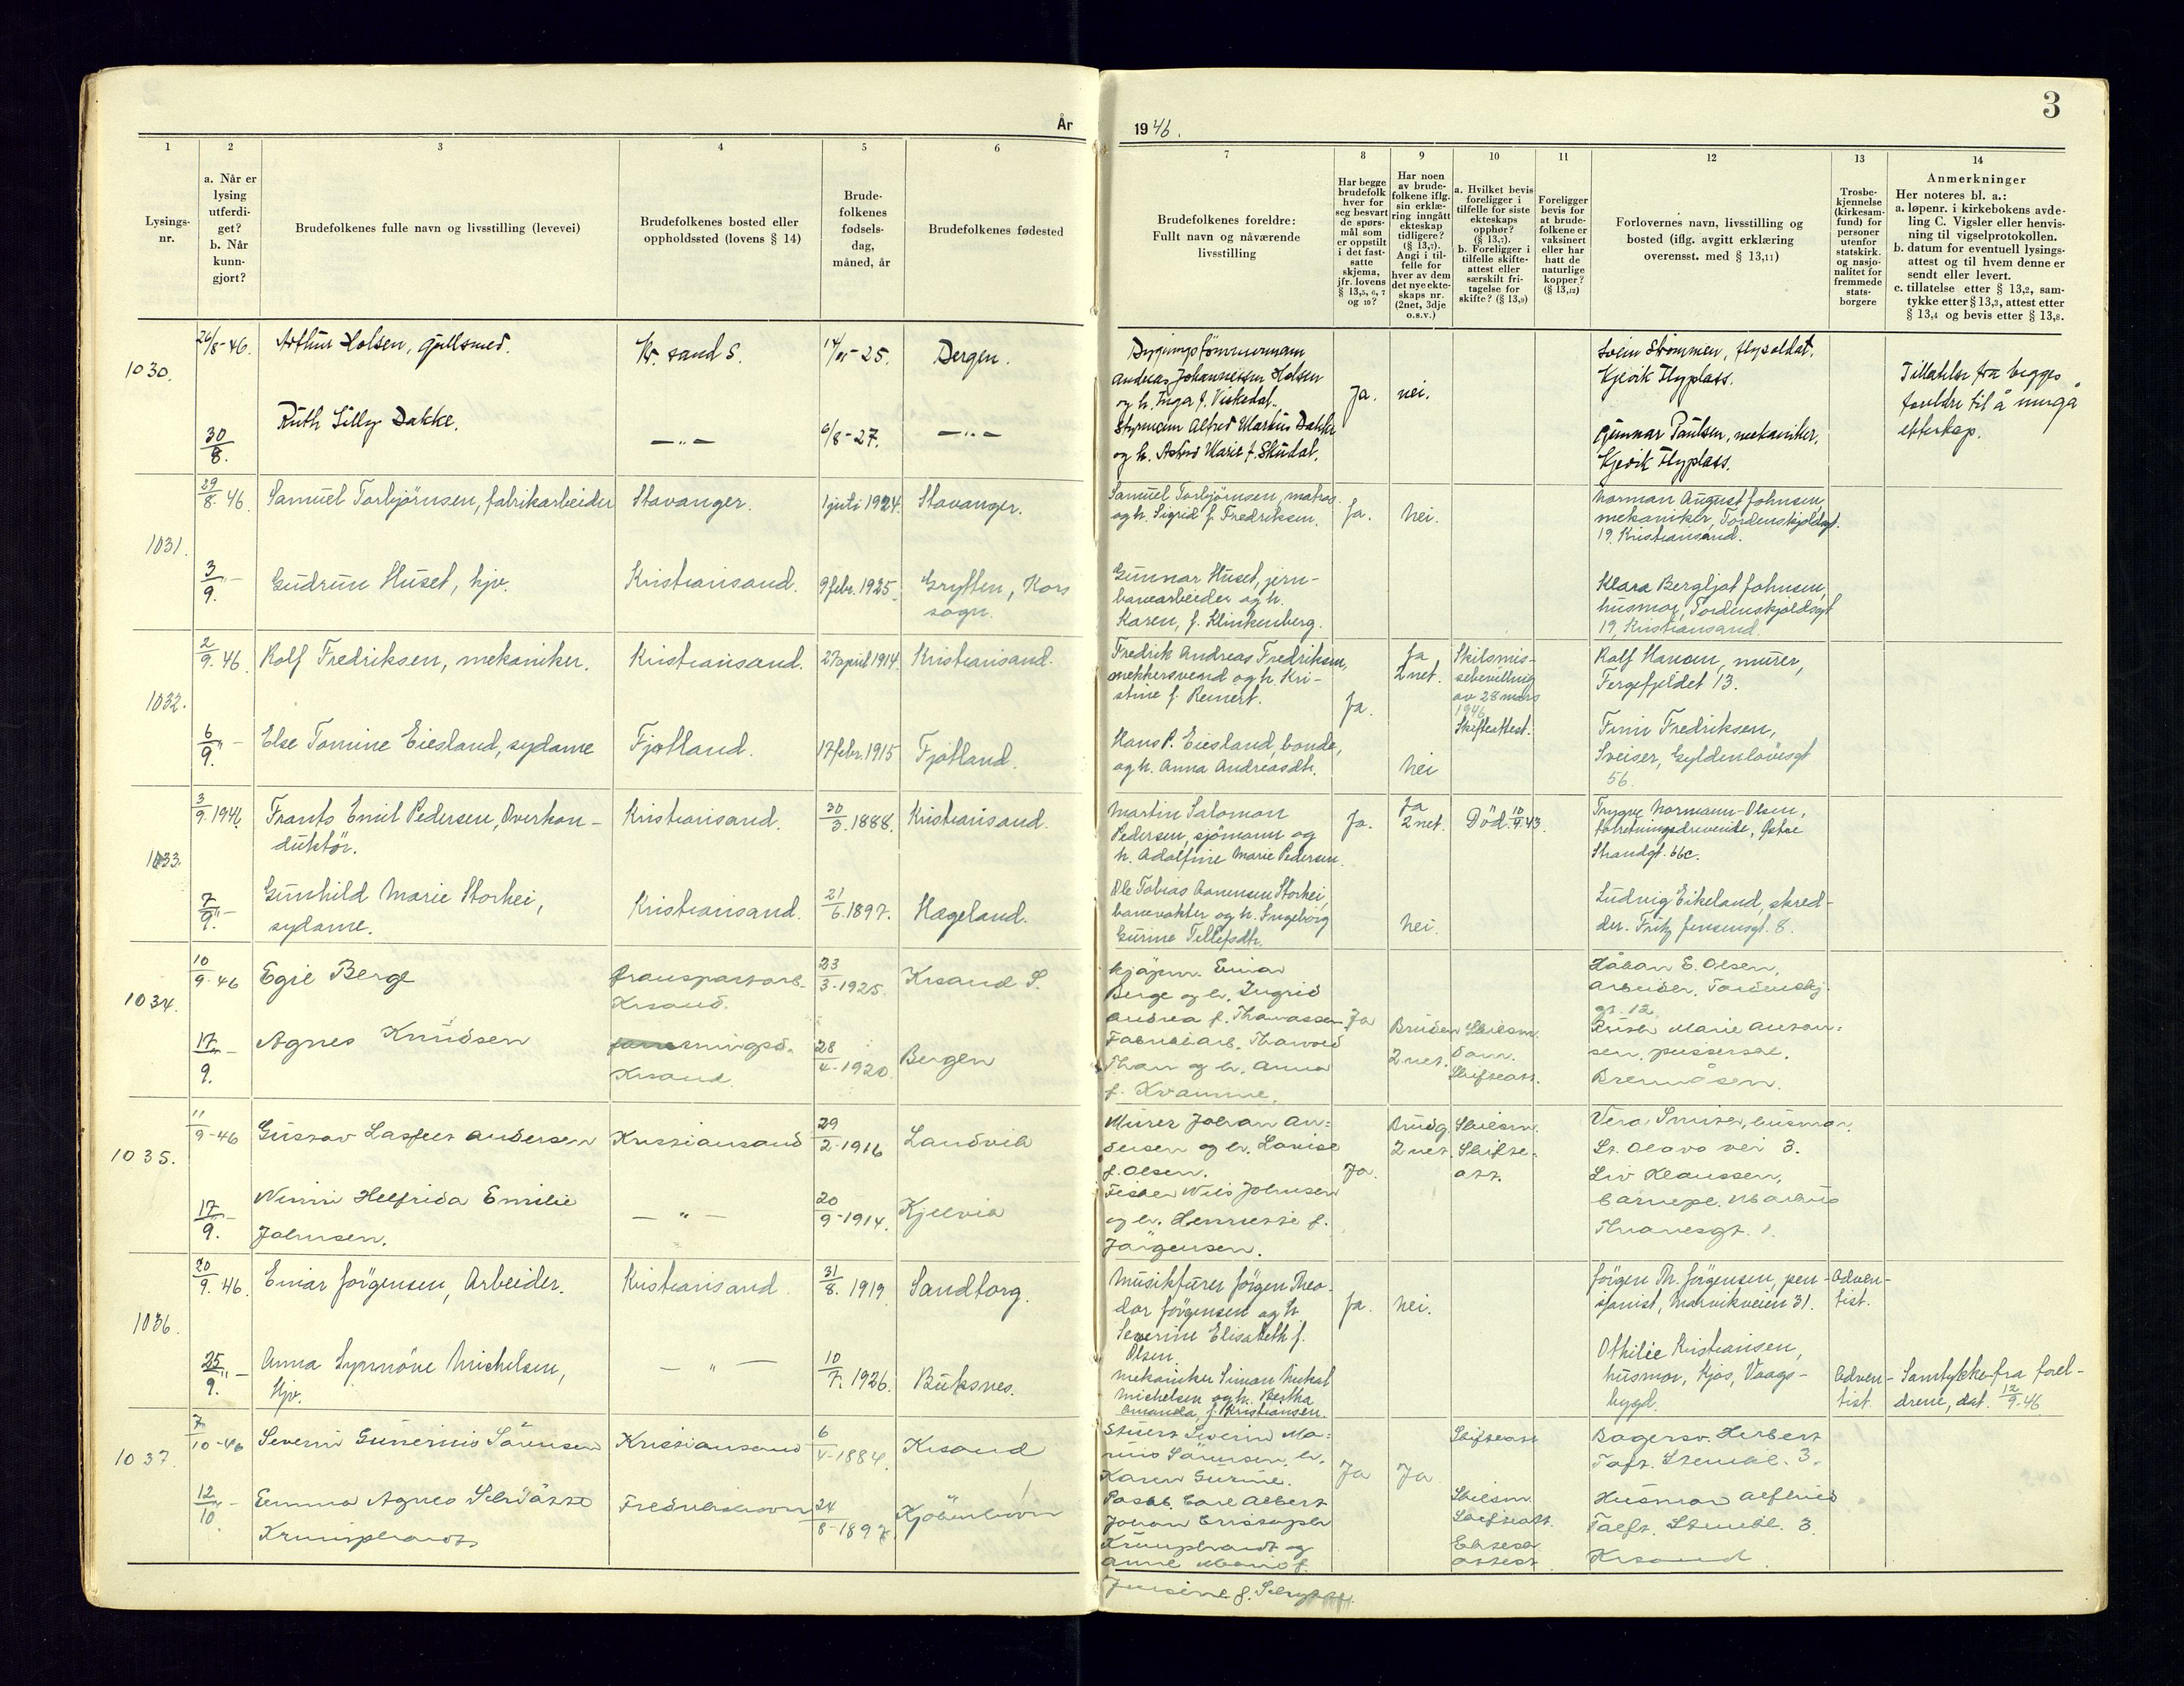 År 1946.
3
1 2 3 4 5 6 7 8 9 10 11 12 13 14
Lysings-
nr.
a. Når er
lysing
utferdi-
get?
b. Når
kunn-
gjort?
Brudefolkenes fulle navn og livsstilling (levevei)
Brudefolkenes bosted eller
oppholdssted (lovens § 14)
Brude-
folkenes
fødsels-
dag,
måned, år
Brudefolkenes fødested
Brudefolkenes foreldre:
Fullt navn og nåværende
livsstilling
Har begge
brudefolk
hver for
seg besvart
de spørs-
mål som
er oppstilt
i det fast-
satte
skjema,
jfr. lovens
§ 13,5, 6, 7
og 10?
Har noen
av brude-
folkene iflg.
sin erklæ-
ring inngått
ekteskap
tidligere?
(§ 13,7).
Angi i til-
felle for
hver av dem
det nye ekte-
skaps nr.
(2net, 3dje
o.s.v.)
a. Hvilket bevis
foreligger i
tilfelle for siste
ekteskaps
opphør?
(§ 13,7).
b. Foreligger i
tilfelle skifte-
attest eller
særskilt fri-
tagelse for
skifte? (§ 13,9)
Foreligger
bevis for
at brude-
folkene er
vaksinert
eller har
hatt de
naturlige
kopper?
(§ 13,12)
Forlovernes navn, livsstilling og
bosted (iflg. avgitt erklæring
overensst. med § 13,11)
Trosbe-
kjennelse
(kirkesam-
fund) for
personer
utenfor
statskirk.
og nasjo-
nalitet for
fremmede
stats-
borgere
Anmerkninger
Her noteres bl. a.:
a. løpenr. i kirkebokens avde-
ling C. Vigsler eller henvis-
ning til vigselprotokollen.
b. datum for eventuell lysings-
attest og til hvem denne er
sendt eller levert.
c. tillatelse etter § 13,2, sam-
tykke etter § 13,3, attest etter
§ 13,4 og bevis etter § 13,8.
1030.
26/8-46.
Arthur Holsen, gullsmed.
Kr. sand S.
-25.
Bergen.
Andreas Johannessen Holsen
og h. Inga f. Viskedal.
Ja.
nei.
Svein Strømmen, flysoldat,
Kjevik Flyplass.
Tillatelse fra begges
foreldre til å inngå
ekteskap.
30/8.
Ruth Lilly Dakke.
— " —
6/8-27.
— " —
Styrmann Alfred Marius Dakke
og h. Astrid Marie f. Skudal.
Gunnar Paulsen, mekaniker,
Kjevik Flyplass.
1031.
29/8 46.
Samuel Torbjörnsen, fabrikarbeider
Stavanger.
1 juli 1924.
Stavanger.
Samuel Torbjörnsen, matros
og h. Sigrid f. Fredriksen.
Ja.
nei.
Norman August Johnsen,
mekaniker, Tordenskjoldsgt.
19. Kristiansand.
3/9. " —
Gudrun Huset, hjv.
Kristiansand.
9 febr. 1925.
Grytten, Kors
sogn.
Gunnar Huset, jern-
banearbeider og h.
Karen, f. Klinkenberg.
Klara Bergljot Johnsen,
husmor, Tordenskjoldsgt
19, Kristiansand.
1032.
2/9. 46.
Rolf Fredriksen, mekaniker.
Kristiansand.
27 april 1914.
Kristiansand.
Fredrik Andreas Fredriksen,
h. Kri-
stine f. Reinert.
Ja.
Ja
2net.
Skilsmis-
sebevilling
av 28 mars
1946
Skifteattest.
Rolf Hansen, murer,
Tergefjeldet 13.
6/9. " —
Else Tomine Eiesland, sydame
Fjotland.
17 febr. 1915
Fjotland.
Hans P. Eiesland, bonde,
og h. Anna Andreasdtr.
nei
Finn Fredriksen,
Sveiser, Gyldenlövesgt
56.
1033.
3/9. 1946.
Frants Emil Pedersen, Overkon-
duktör.
Kristiansand.
30/3. 1888.
Kristiansand.
Martin Salomon
Pedersen, sjömann og
h. Adolfine Marie Pedersen.
Ja.
Ja
2net.
Död. 10/4. 43.
Trygve Normann-Olsen,
forretningsdrivende, Østre
Strandgt. 66c.
7/9. " —
Gunhild Marie Storhei,
sydame.
Kristiansand.
21/6. 1897.
Hægeland.
Ole Tobias Aanensen Storhei,
banevakter og h. Ingeborg
Gurine Tellefsdtr.
nei.
Ludvig Eikeland, skred-
der. Fritz Jensensgt. 8.
1034.
10/9-46
Egil Berge
transportarb.
Krsand.
23/3-1925.
Krsand S.
Einar
Berge og h. Ingrid
Andrea f. Thomassen
Ja
Bruden
2net.
Skilsm.
dom.
Skifteatt.
Håkon E. Olsen,
arbeider. Tordenskj.
gt. 12.
17/9. —
Agnes Knudsen
Krsand
28/4-1920.
Bergen
Fabrikkarb. Thorvald
Thon og h. Anna
f. Kvamme.
Ruth Marie Anton-
sen,
1035.
11/9-46
Gustav Andersen
Kristiansand
29/2-1916
Landvik
Murer Johan An-
dersen og h. Lovise
f. Olsen.
Ja.
Brudg.
2net.
Skilsm.
Skifte-
att.
husmor.
St. Olavs vei 3.
17/9. —
Ninni Helfrida Emilie
Johnsen.
— " —
20/9-1914.
Kjelvik
Fisker Nils Johnsen
og h. Henriette f.
Jørgensen.
Liv Klaussen,
barnepl. Markus
Thranesgt. 1.
1036.
20/9. 46.
Einar Jörgensen, Arbeider.
Kristiansand.
31/8. 1919
Sandtorg.
Jörgen Theo-
dor Jörgensen og h
Severine Elisabeth f.
Olsen.
Ja.
nei.
Jörgen Th. Jörgensen, pen-
sjonist, Marvikveien 31.
Adven-
tist.
25/9. " —
Anna Synnöve Michelsen,
Hjv.
— " —
10/7. 1926.
Buksnes.
mekaniker Simon Mikal
Michelsen og h. Bertha
Amanda, f. Kristiansen.
Othilie Kristiansen,
husmor, Kjos, Vaags-
bygd.
Adven-
tist.
Samtykke fra forel-
drene, dat. 12/9-46
1037.
7/10-46
Severin Sörensen
Kristiansand
6/4-1884.
Krsand
Severin Ma-
rius Sörensen, h.
Karen Gurine.
Ja
Ja
Skifteatt
Herbert
3.
12/10 " —
Emma Agnes
Frederikshavn
24/8-1897.
Kjöbenhavn
Carl Albert
Johan
og
Skilsm.
Skifteatt.
attest
Husmor
3.
Krsand.